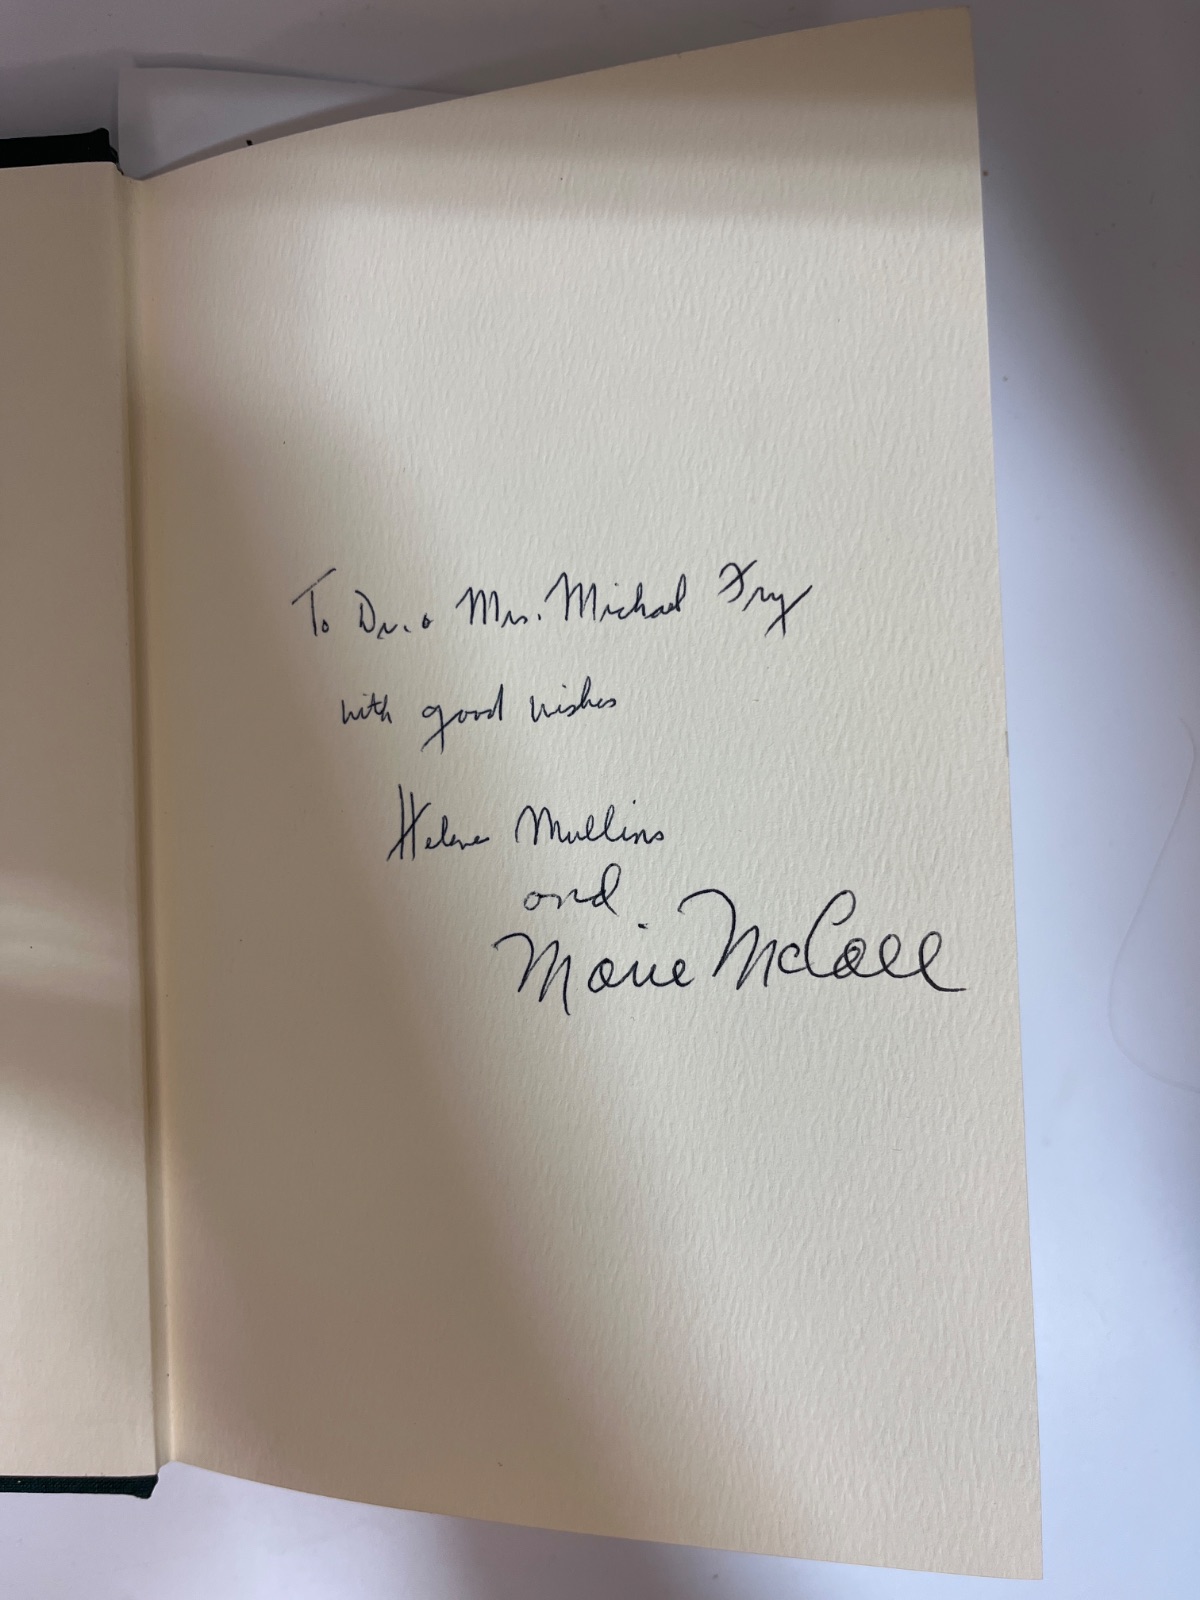 To Dr. & Mrs. Michael Fry
with good wishes
Helene Mullins
and
Marie McCall